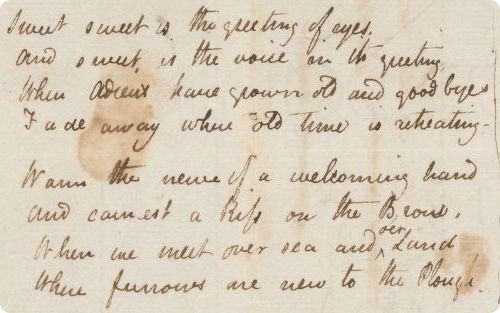 Sweet sweet is the greeting of eyes,
And sweet is the voice in its greeting
When Adieux have grown old and goodbyes
Fade away where old time is retreating—
Warm the nerve of a welcoming hand
And earnest a Kiss on the Brow,
When we meet over sea and over Land
Where furrows are new to the Plough.